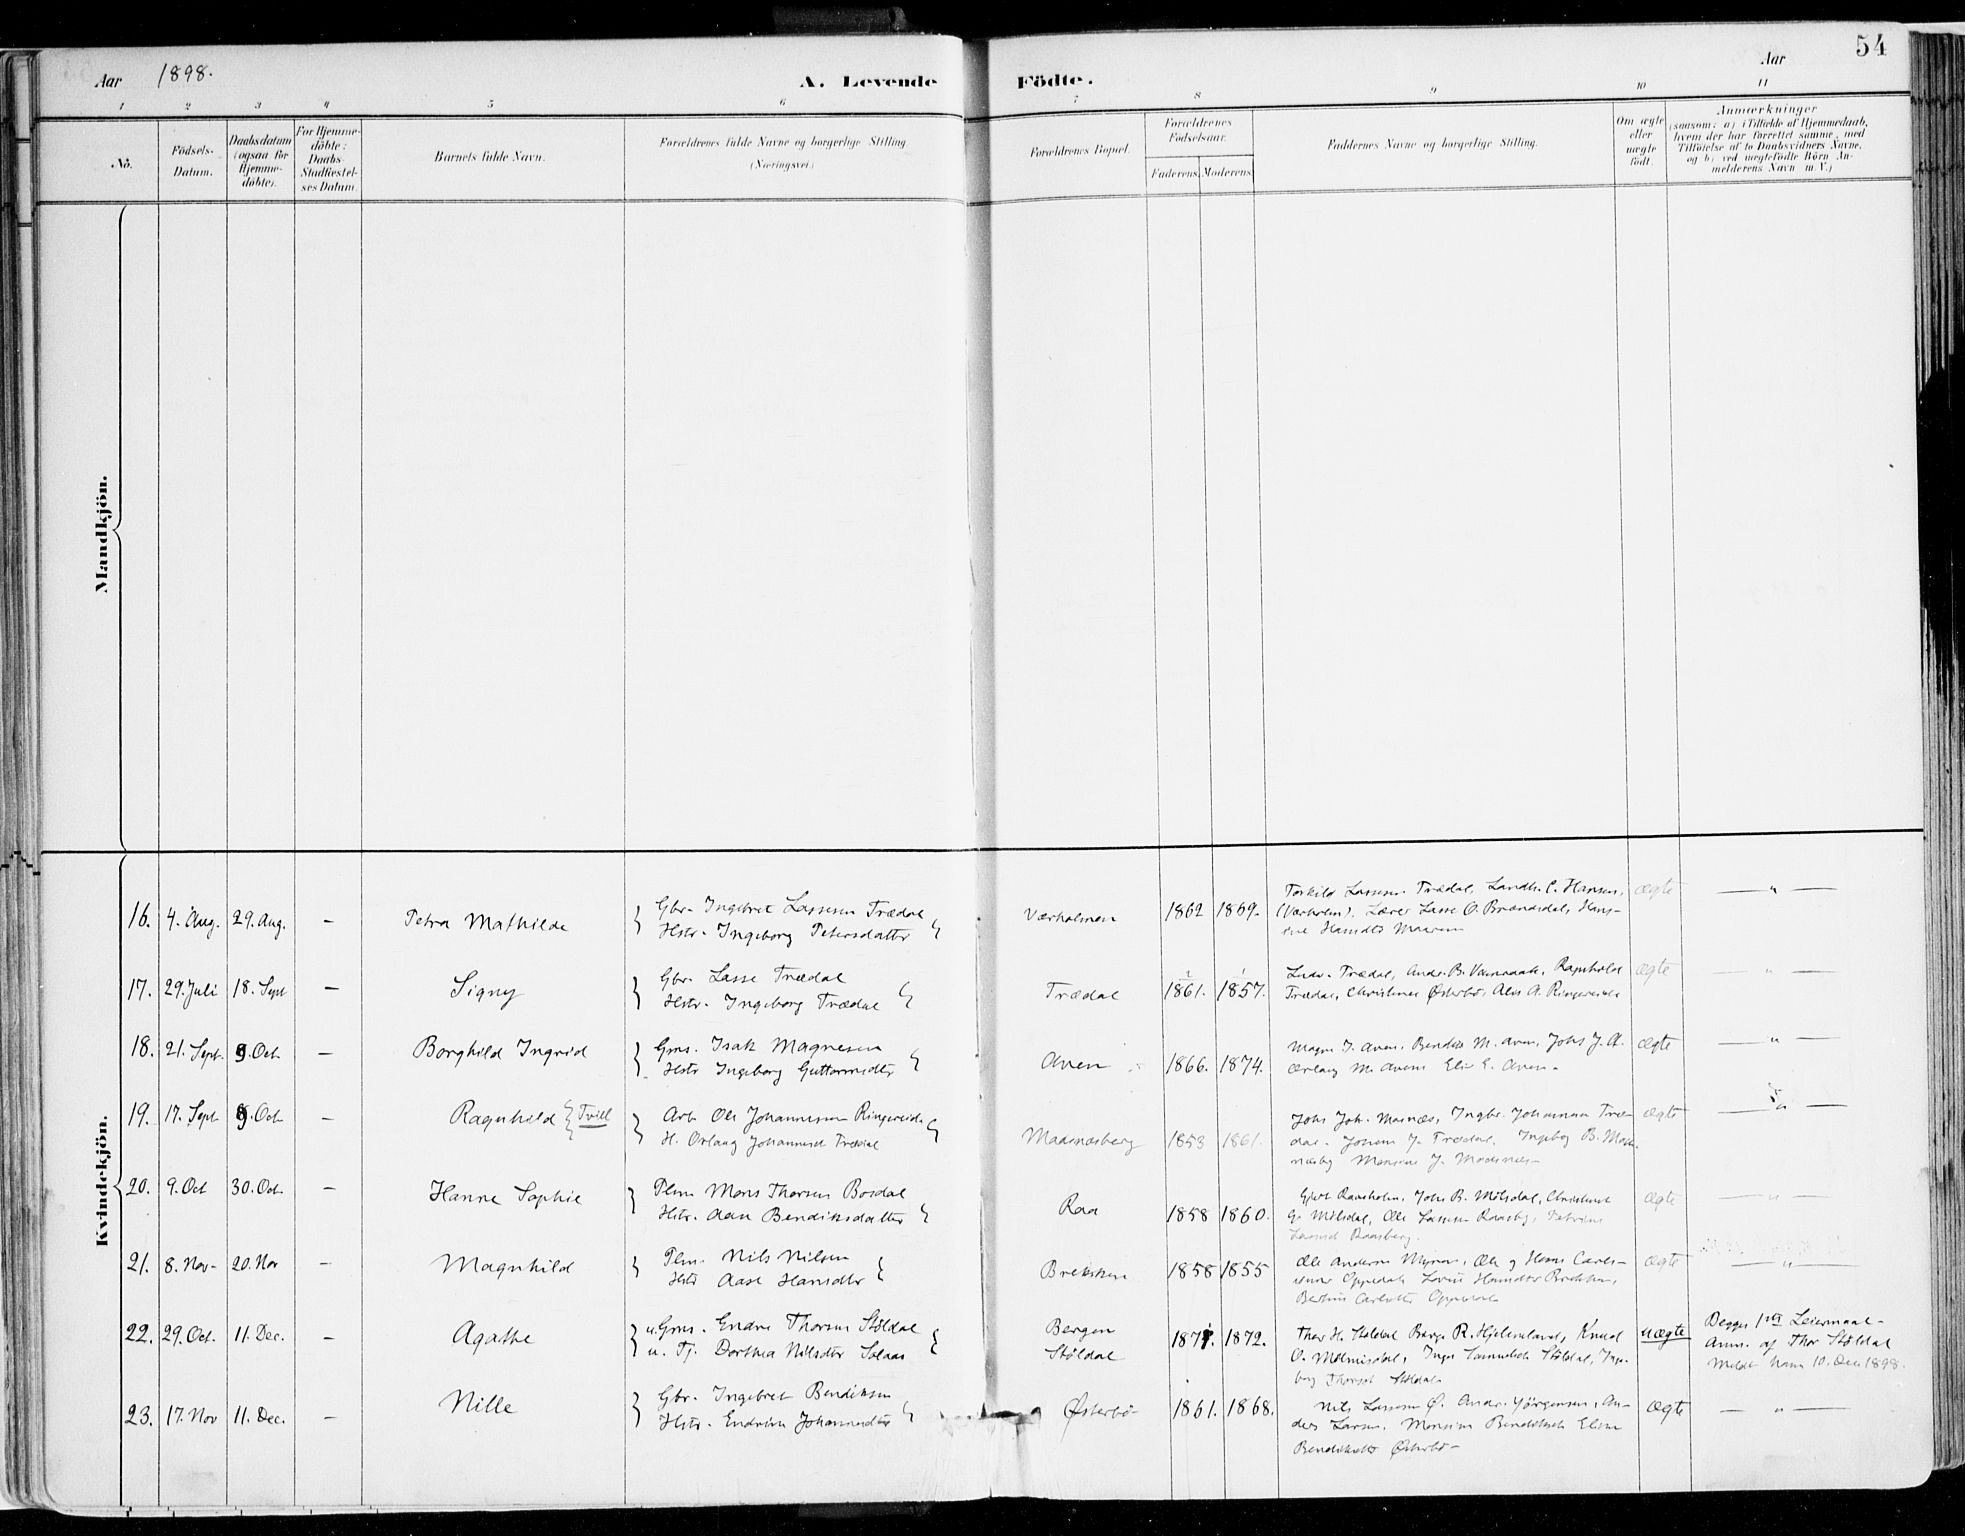 54
Aar 1898. A. Levende Födte. Aar
1 2 3 4 5 6 7 8 9 10 11
No.
Födsels-Datum.
Daabsdatum (ogsaa for Hjemme-döbte).
For Hjemme-döbte: Daabs-Stadfæstel-ses Datum.
Barnets fulde Navn.
Forældrenes fulde Navne og borgerlige Stilling (Næringsvei.)
Forældrenes Bopæl.
Forældrenes Födselsaar.
Faderens. Moderens.
Faddernes Navne og borgerlige Stilling.
Om ægte eller uægte födt.
Anmærkninger
(saasom: a) i Tilfælde af Hjemmedaab,
hvem der har forrettet samme, med
Tilföielse af to Daabsvidners Navne,
og b) ved uægtefödte Börn An-
melderens Navn m.V.)
Mandkjön.
Kvindekjön.
16. 4. Aug. 29. Aug. – Petra Mathilde
Gbr. Ingebret Lassesen Trædal
Hstr. Ingeborg Petersdatter
Værholmen 1862 1869.
Torkild Lassesen Trædal, Landh. C. Hansen,
(Værholm). Lærer Lasse O. Brændsdal, Hans-
ine Hansdtr
ægte — " —
17. 29. Juli 18. Sept – Signy
Gbr. Lasse Trædal
Hstr. Ingeborg Trædal
Trædal 1861. 1857.
Trædal, Andr. B. Ragnhild
Trædal, Christine Østerbö, A. Ringereide
ægte — " —
18. 21. Sept. 9. Oct – Borghild Ingrid
Gms. Isak Magnesen
Hstr Ingeborg Guttormsdtr
Aven 1866. 1874.
Magne J. Aven, M. Aven, Johs J. A.
M. Avens E. Aven.
ægte — " —
19. 17. Sept 9. Oct – Ragnhild Tvill
Arb. Ole Johannesen Ringereide
H. Orlaug Johannesd Trædal
Maasnæsberg 1853 1861.
Johs Joh. Masnæs, Ingbr. Johannes Træ-
dal. Johan J. Trædal, Ingebog B. Maas-
næsbg J. Maasnæs
ægte — " —
20. 9. Oct 30. Oct. – Hanne Sophie
Plm Mons Thorsen Bosdal
Hstr. Aan Bendiksdatter
Raa 1858 1860.
Johs B. Mölsdal, Christine
Mölsdal, Ole Lassesen Raasbg,
Raasberg.
ægte — " —
21. 8. Nov – 20. Nov – Magnhild
Plm. Nils Nilsen
Hstr Aase Hansdtr
Brekken 1858 1855
Ole Andersen Myren, Ole og Hans Carls-
Oppedal, Hansdtr Brekken,
Oppedal
ægte — " —
22. 29. Oct. 11. Dec. – Agathe
u. Gms. Endre Thorsen Stöldal
u. Tj. Dorthea Nilsdtr Solaas
Bergen
Stöldal
1871. 1872.
Thor H. Stöldal R. Hjelmeland, Knud
O. Inger Stöldal, Inge-
borg Stöldal
uægte
Begges 1ste Leiermaal.
Anm. af Thor Stöldal
10. Dec. 1898.
23. 17. Nov 11. Dec. – Nille
Gbr. Ingebret Bendiksen
Hstr. Endrine Johannesdtr
Østerbö 1861. 1868.
Nils Lassesen Ø. Andr. Jörgensen, An-
ders Larsen, Bendiksdtr Eline
Bendiksdtr Østerbö –
ægte — " —